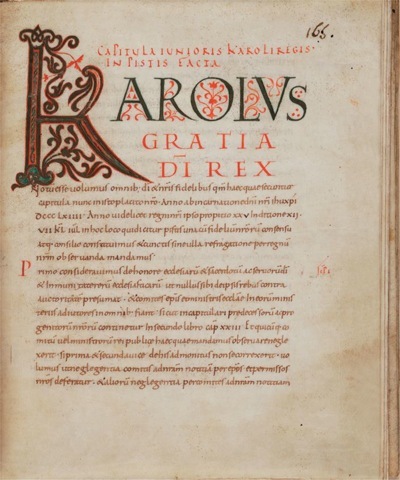 165.
CAPITULA IUNIORIS KAROLI REGIS.
IN PISTIS FACTA
KAROLVS
GRATIA
DI REX
Notu esse volumus omnib; di & nris fidelibus qm haec quae secuntur
capitula nunc in isto placito nro. Anno ab incarnatione dni nri ihu xpi
DCCC LXIIII. Anno videlicet regni nri ipso propitio XXV indictione XII.
VII kl iul. in hoc loco qui dicitur pistis una cu fideliu nroru consensu
atq; consilio constituimus & cunctis sine ulla refragatione per regnu
nrm observanda mandamus.
Primo consideravimus de honore ecclesiaru & sacerdotu ac servoru di
& inmunitate reru ecclesiasticaru. ut nullus sibi de ipsis rebus contra
auctoritate presumat. & comites epis & ministris ecclae in eoru minis
teriis adiutores in omnib; fiant. sicut in capitulari predecessoru ac pro
genitoru nroru continetur in secundo libro cap XXIII. Et quicuq; co
mitu vel ministroru rei publice haec quae mandamus observare negle
xerit. si prima & secunda vice de his admonitus non se correxerit. vo
lumus ut neglegentia comitis ad nram notitia per epos & per missos
nros deferatur. & aliorum neglegentia per comites ad nram notitiam